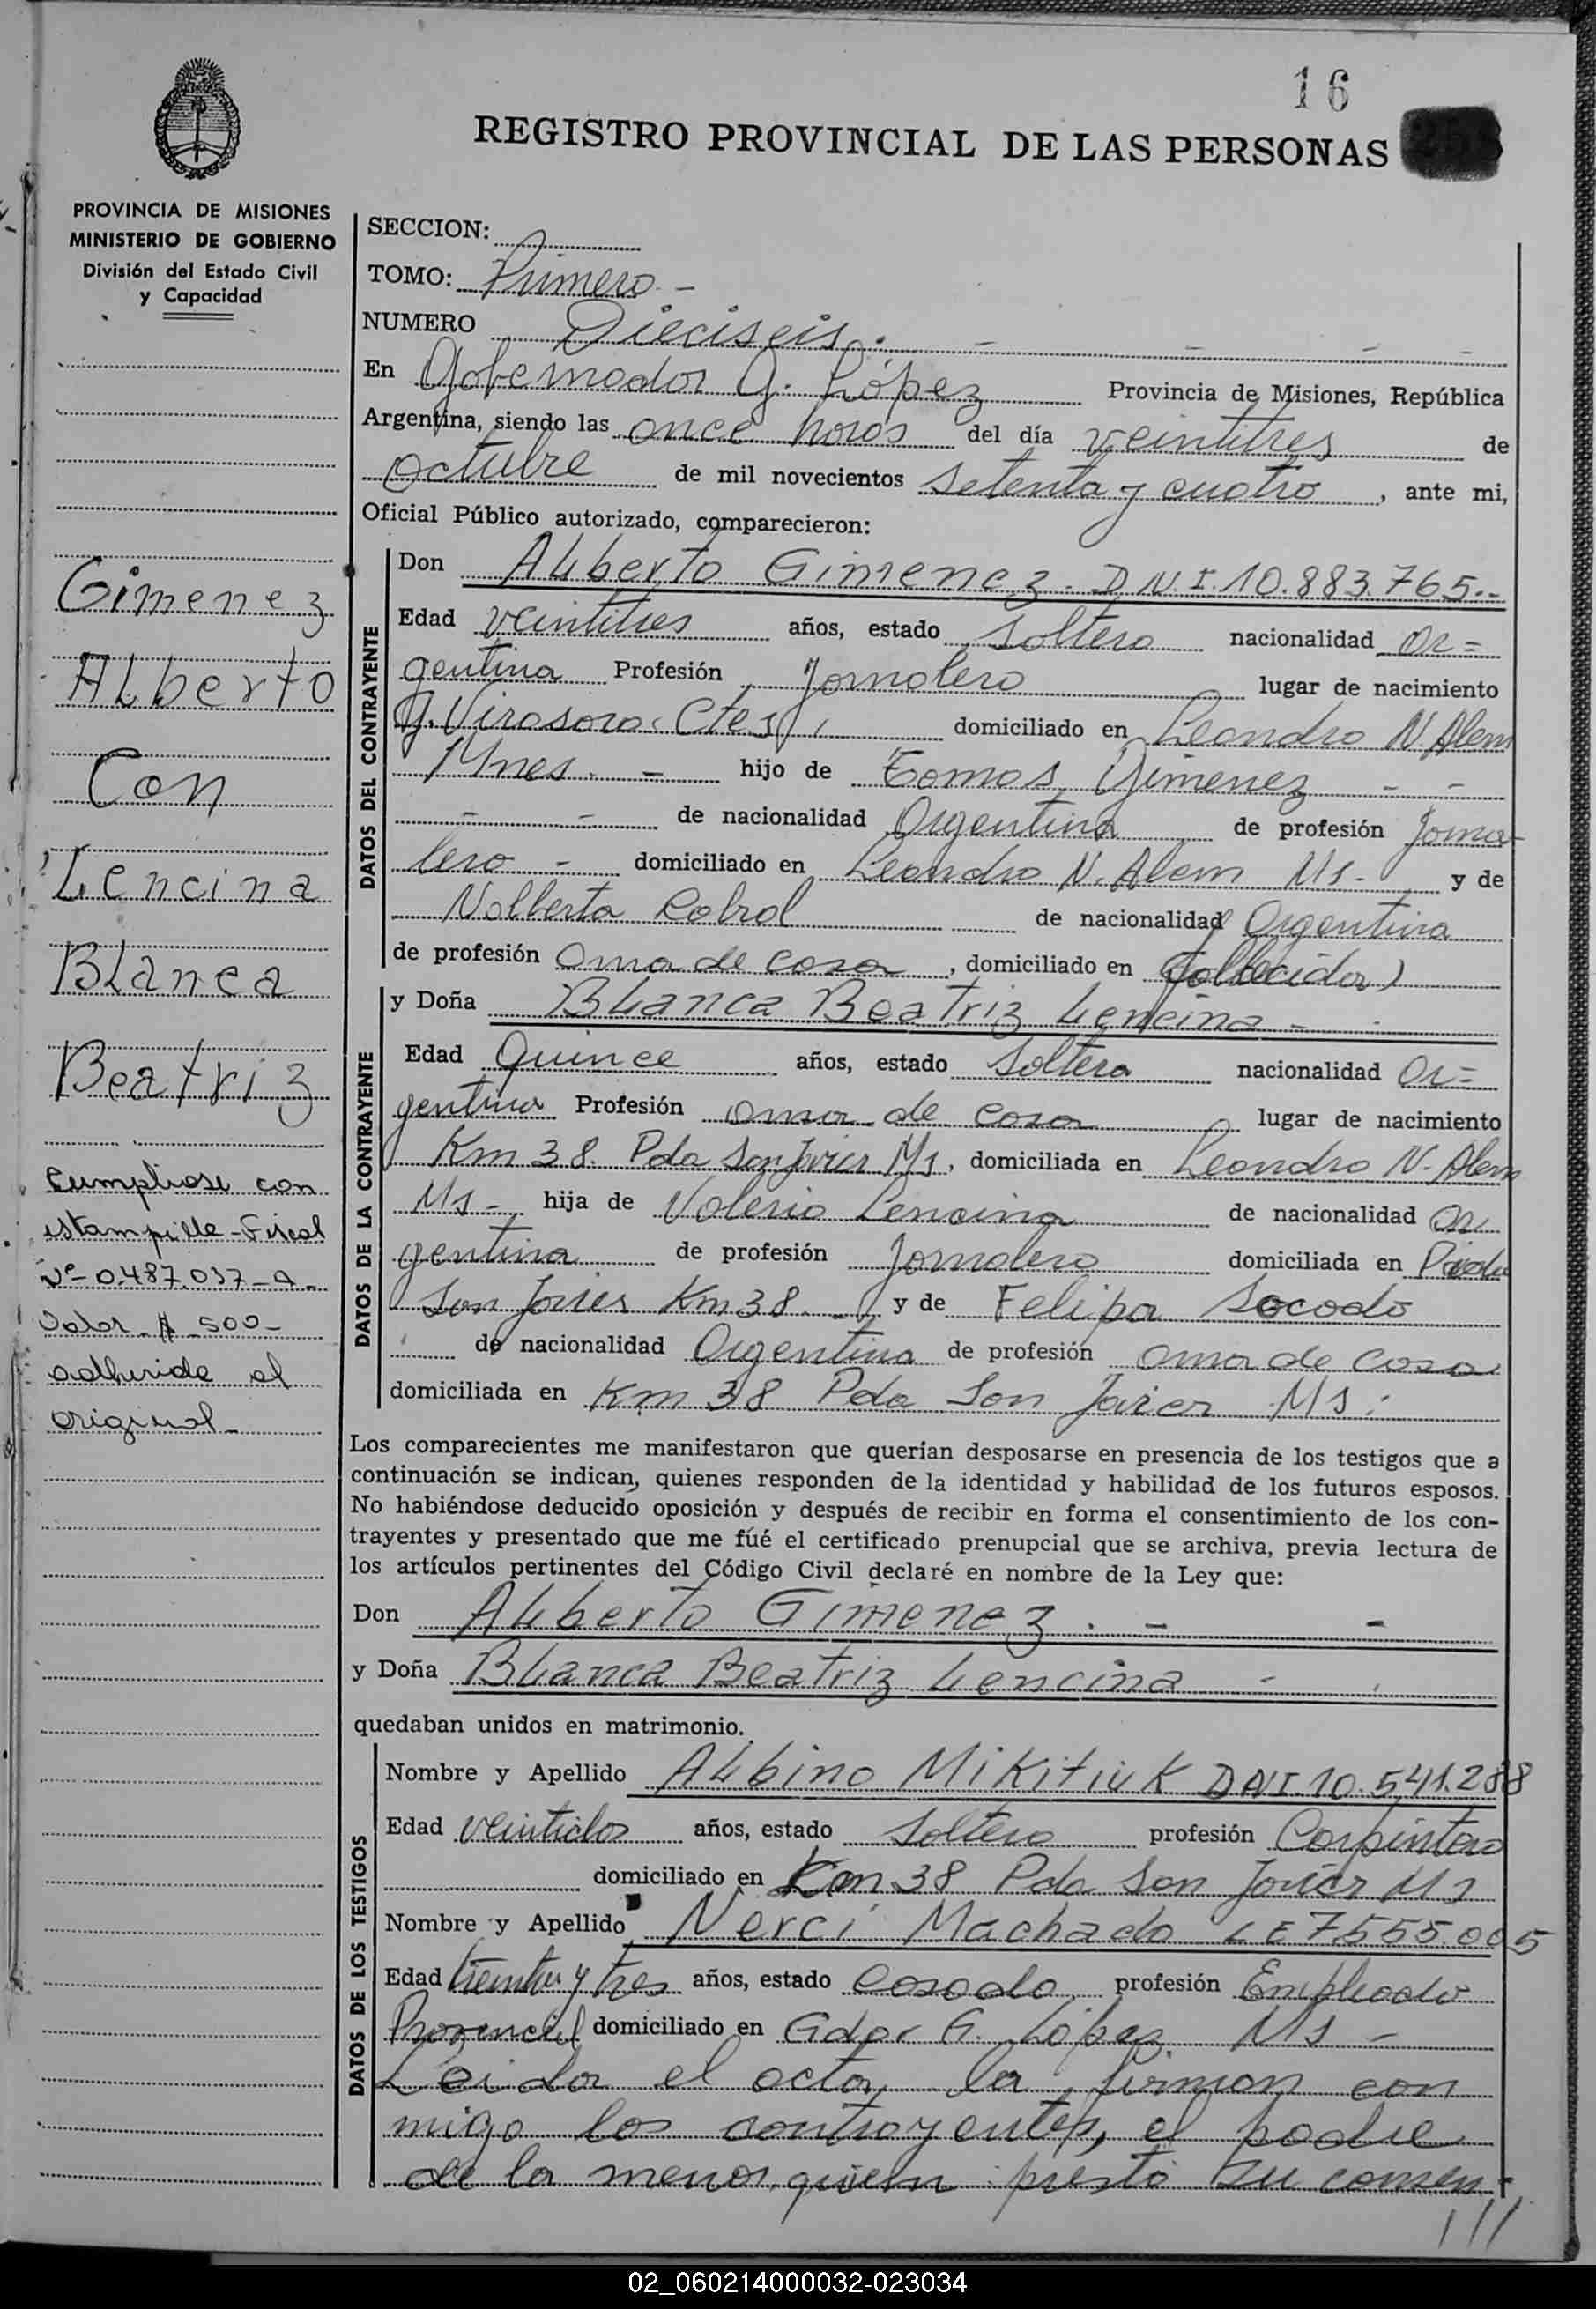 16
REGISTRO PROVINCIAL DE LAS PERSONAS
PROVINCIA DE MISIONES
MINISTERIO DE GOBIERNO
División del Estado Civil
y Capacidad
Gimenez
ALberto
Con
Lencina
BLanca
Beatriz
Cumpliose con
estampilla - Fiscal
Nº 0.487.037-A-
Valor $ 500-
adherida al
original-
SECCION:
TOMO: Primero -
NUMERO Dieciseis. - - - -
En Gobernador G. López Provincia de Misiones, República
Argentina, siendo las once horas del día veintitres de
octubre de mil novecientos setenta y cuatro, ante mi,
Oficial Público autorizado, comparecieron:
DATOS DEL CONTRAYENTE
Don ALberto Gimenez - D.N.I. 10.883.765.-
Edad veintitres años, estado Soltero nacionalidad Ar=
gentina Profesión Jornalero lugar de nacimiento
G. Virasoro (Ctes), domiciliado en Leandro N. Alem
Mnes. - hijo de Tomas Gimenez - -
- - de nacionalidad Argentina de profesión Jorna-
lero - domiciliado en Leandro N. Alem Ms- y de
Nolberta Cabral de nacionalidad Argentina
de profesión Ama de casa, domiciliado en (fallecida)
DATOS DE LA CONTRAYENTE
y Doña BLanca Beatriz Lencina -
Edad Quince años, estado Soltera nacionalidad Ar=
gentina Profesión ama de casa lugar de nacimiento
Km 38. Pda San Javier Ms, domiciliada en Leandro N. Alem
Ms - hija de Valerio Lencina de nacionalidad Ar
gentina de profesión Jornalero domiciliada en
San Javier Km 38. - y de Felipa Socodo
de nacionalidad Argentina de profesión ama de casa
domiciliada en Km 38 Pda San Javier Ms.
Los comparecientes me manifestaron que querían desposarse en presencia de los testigos que a
continuación se indican, quienes responden de la identidad y habilidad de los futuros esposos.
No habiéndose deducido oposición y después de recibir en forma el consentimiento de los con-
trayentes y presentado que me fué el certificado prenupcial que se archiva, previa lectura de
los artículos pertinentes del Código Civil declaré en nombre de la Ley que:
Don ALberto Gimenez. - -
y Doña BLanca Beatriz Lencina -
quedaban unidos en matrimonio.
DATOS DE LOS TESTIGOS
Nombre y Apellido ALbino Mikitiuk DNI. 10.541.288
Edad veintidos años, estado Soltero profesión Carpintero
domiciliado en Km 38 Pda San Javier Ms
Nombre y Apellido Nerci Machado LE 7.555.005
Edad treinta y tres años, estado casado profesión Empleado
Provincial domiciliado en Gdor G. López Ms -
Leida el acta, la firman con
migo los contrayentes, el padre
de la menor, quien prestó su consen-
///
02_060214000032-023034